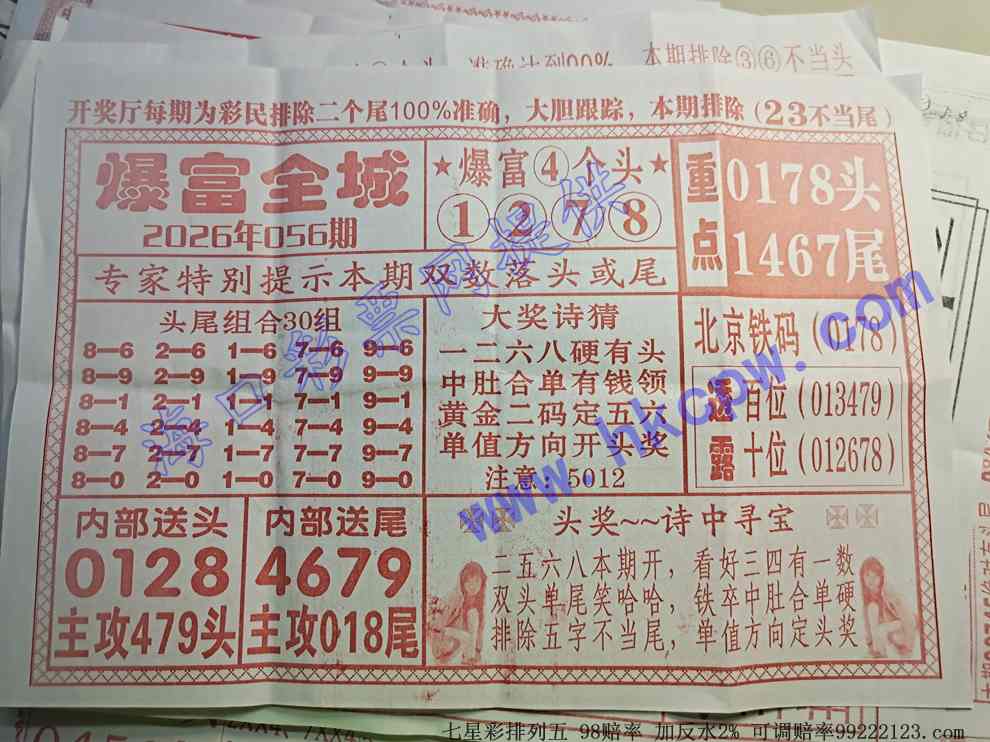 准确达到00%
本期排除③⑥不当头
开奖厅每期为彩民排除二个尾100%准确，大胆跟踪，本期排除（23不当尾）
爆富全城
2026年056期
★爆富④个头★
①②⑦⑧
重点
0178头
1467尾
专家特别提示本期双数落头或尾
头尾组合30组
8—6 2—6 1—6 7—6 9—6
8—9 2—9 1—9 7—9 9—9
8—1 2—1 1—1 7—1 9—1
8—4 2—4 1—4 7—4 9—4
8—7 2—7 1—7 7—7 9—7
8—0 2—0 1—0 7—0 9—0
大奖诗猜
一二六八硬有头
中肚合单有钱领
黄金二码定五六
单值方向开头奖
注意：5012
北京铁码（0178）
透露
百位（013479）
十位（012678）
内部送头
0128
主攻479头
内部送尾
4679
主攻018尾
头奖~~诗中寻宝
二五六八本期开，看好三四有一数
双头单尾笑哈哈，铁卒中肚合单硬
排除五字不当尾，单值方向定头奖
海口彩票网提供
www.hkcpw.com
七星彩排列五 98赔率 加反水2% 可调赔率99222123.com